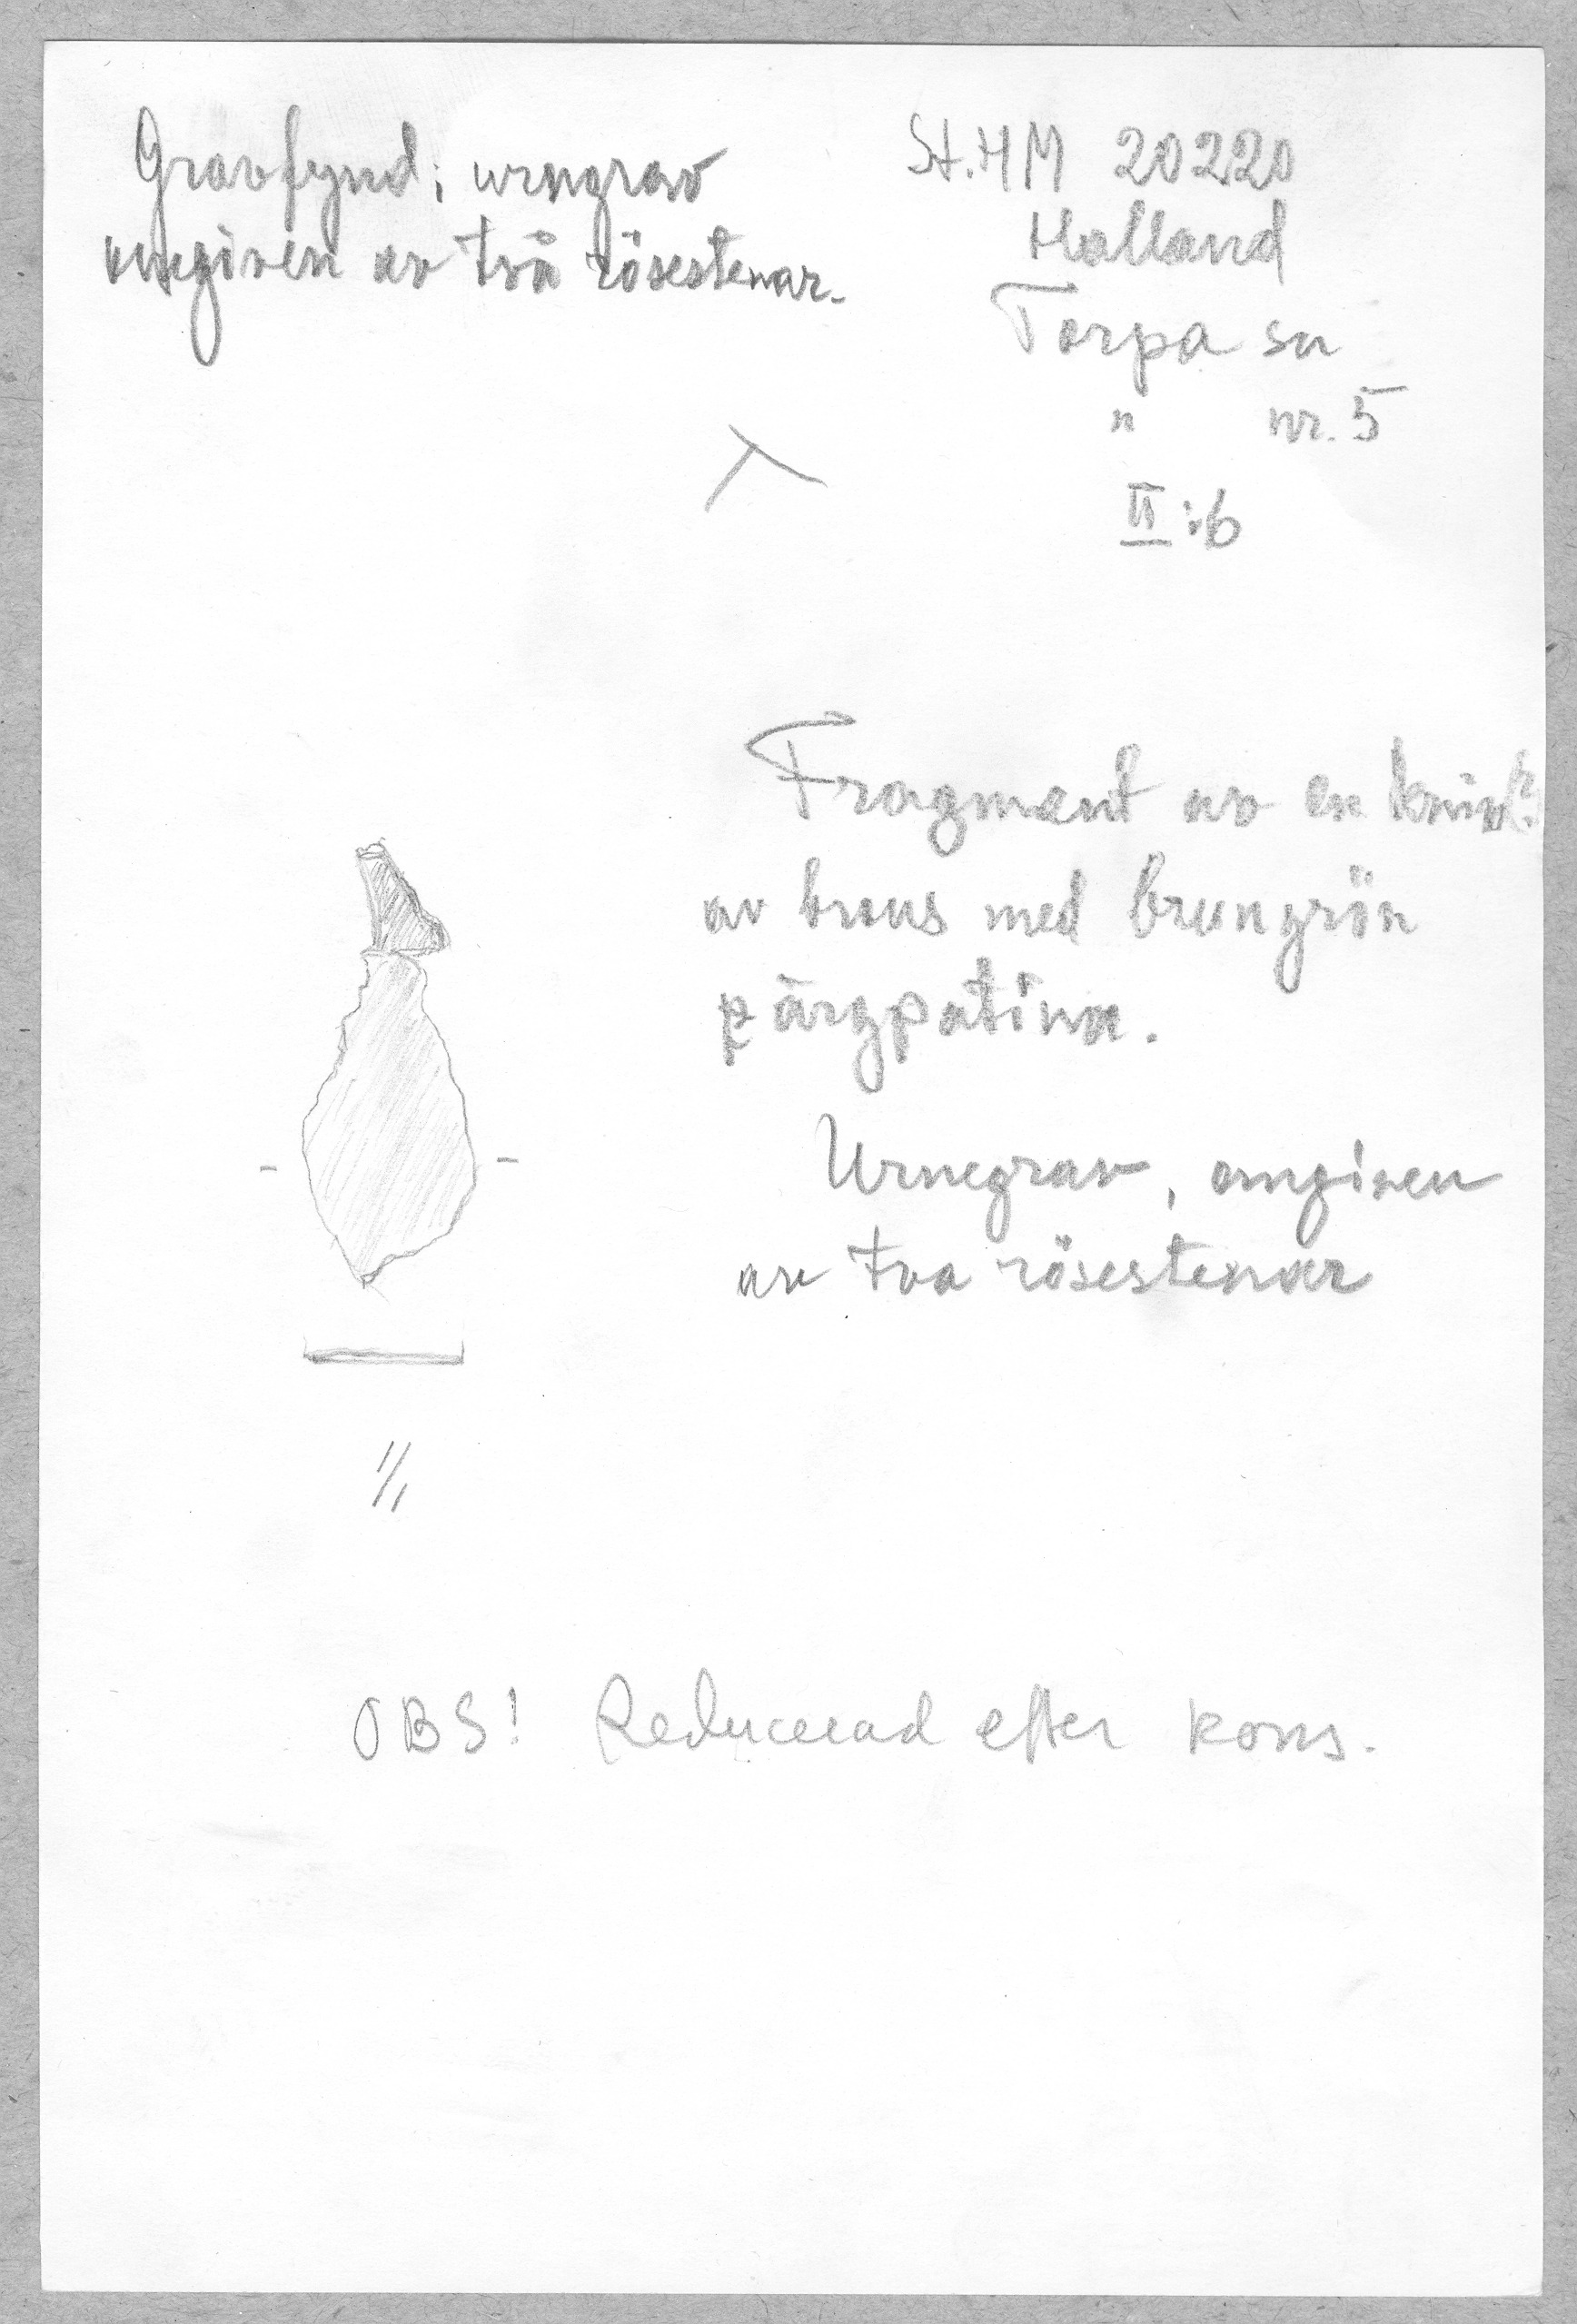 Gravfynd; urngrav
omgiven av två rösestenar.
St.HM 20220
Halland
Torpa sn
" nr. 5
II:6
Fragment av en kniv?
av brons med brungrön
ärgpatina.
Urnegrav, omgiven
av två rösestenar
1/1
OBS! Reducerad efter kons.